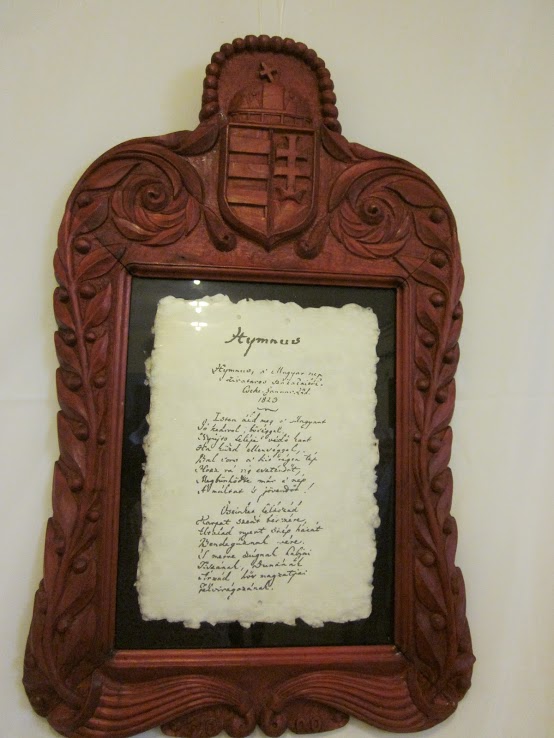 Hymnus
Hymnus, a' Magyar nép
zivataros századaiból.
Cseke Január
1823
Isten áldd meg a' Magyart
Jó kedvvel, bőséggel,
Nyújts feléje védő kart
Ha küzd ellenséggel;
Bal sors a' kit régen tép
Hozz rá víg esztendőt,
Megbűnhődte már e' nép
A' multat 's jövendőt!
Őseinket felhozád
Kárpát szent bérczére,
Általad nyert szép hazát
Bendegúznak vére.
'S merre zúgnak habjai
Tiszának, Dunának
Árpád hős magzatjai
Felvirágozának.